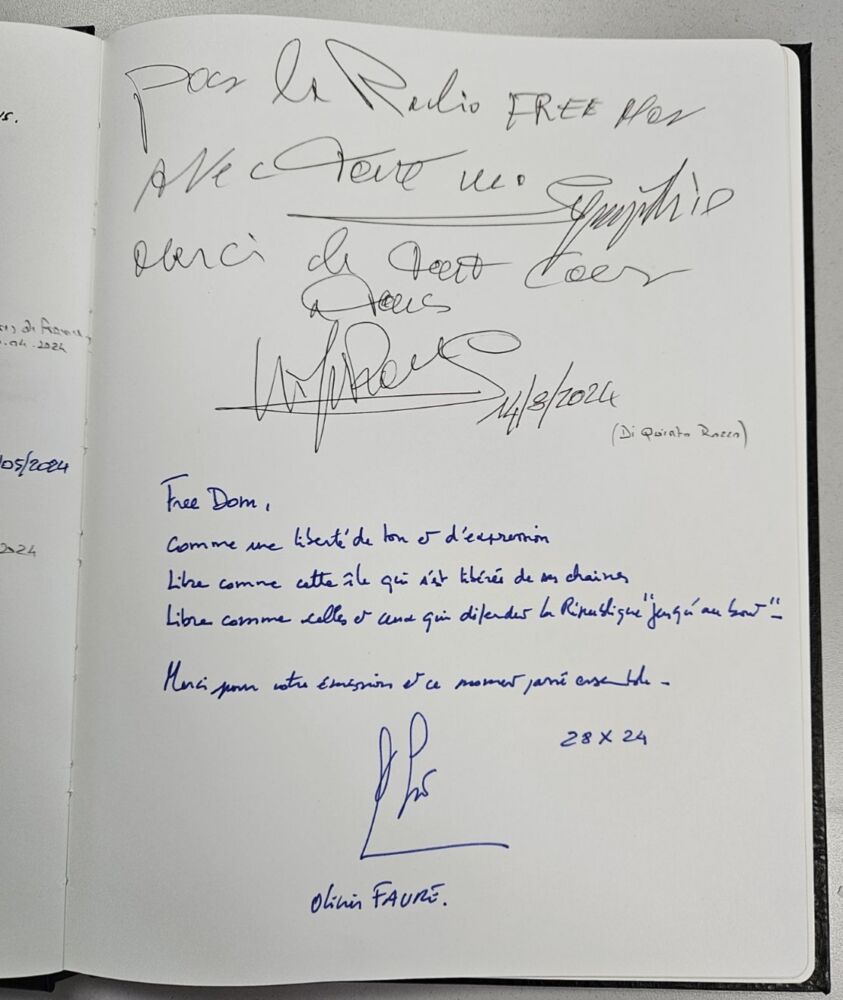 us.
ns de France,
.04.2024
/05/2024
2024
pour la Radio FREE Dom
Avec toute ma Sympathie
Merci de tout Coeur
14/8/2024
(Di Quinto Rocco)
Free Dom,
Comme une liberté de ton et d'expression
Libre comme cette île qui s'est libérée de ses chaines
Libre comme celles et ceux qui défendent la République "jusqu'au bout" -
Merci pour votre émission et ce moment passé ensemble -
28 X 24
Olivier FAURE.